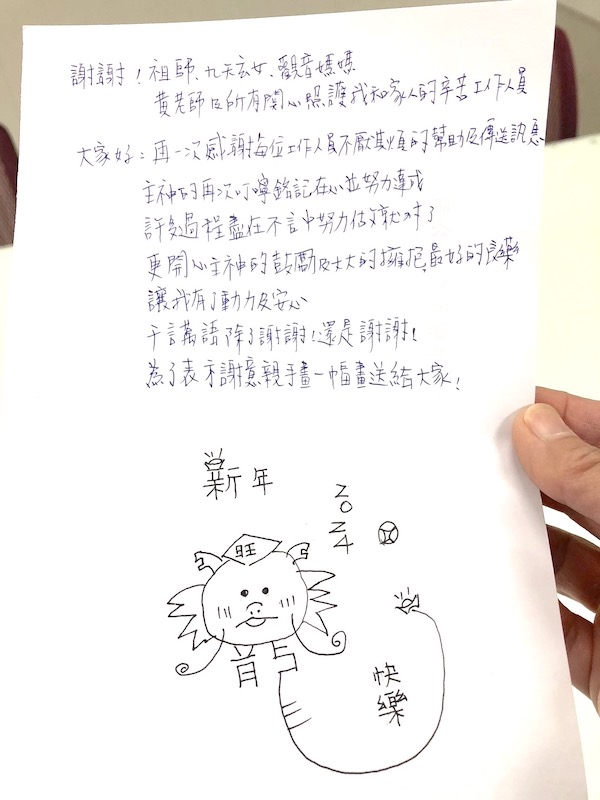 謝謝!祖師、九天玄女、觀音媽媽
黃老師及所有關心照護我和家人的辛苦工作人員
大家好:再一次感謝每位工作人員不厭其煩的幫助及傳送訊息
主神的再次叮嚀銘記在心並努力達成
許多過程盡在不言中努力做就對了
更開心主神的鼓勵及大大的擁抱,最好的良藥
讓我有了動力及安心
千言萬語除了謝謝!還是謝謝!
為了表示謝意親手畫一幅畫送給大家!
新年
2024
旺
快樂